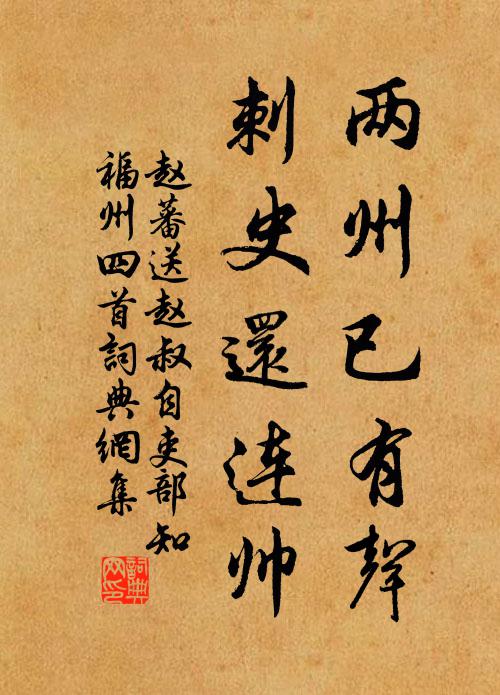 两州已有聲
刺史還连帅
赵蕃送赵叔自吏部知
福州四首詞典網集
詞典
网印